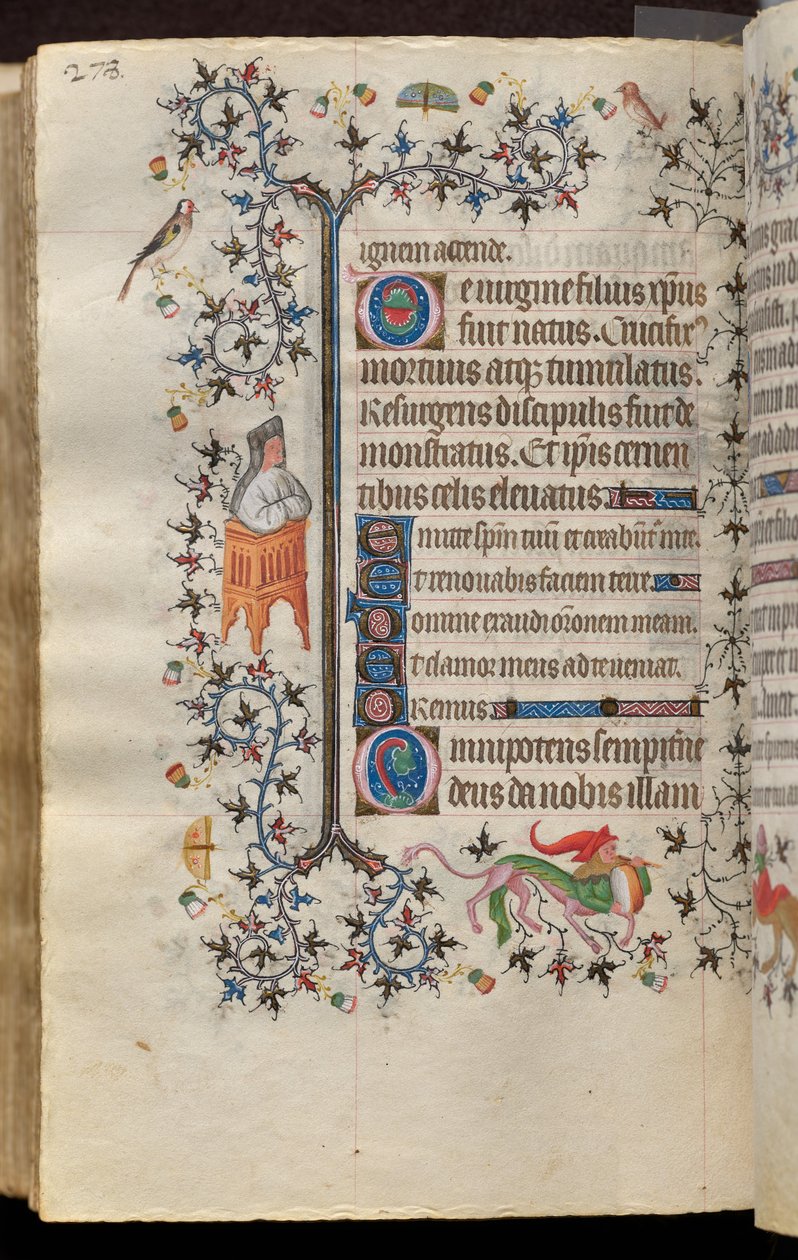 273.
ignem accende.
De uirgine filius xp̃us
fuit natus. Crucifixꝰ
mortuus atqꝫ tumulatus.
Resurgens discipulis fuit de
monstratus. Et ip̃is cernen
tibus celis eleuatus.
Emitte sp̃m tuũ et creabũt᷑
Et renouabis faciem terre.
Domine exaudi or̃onem meam.
Et clamor meus ad te ueniat.
Oremus.
Omnipotens sempit̾ne
deus da nobis illam